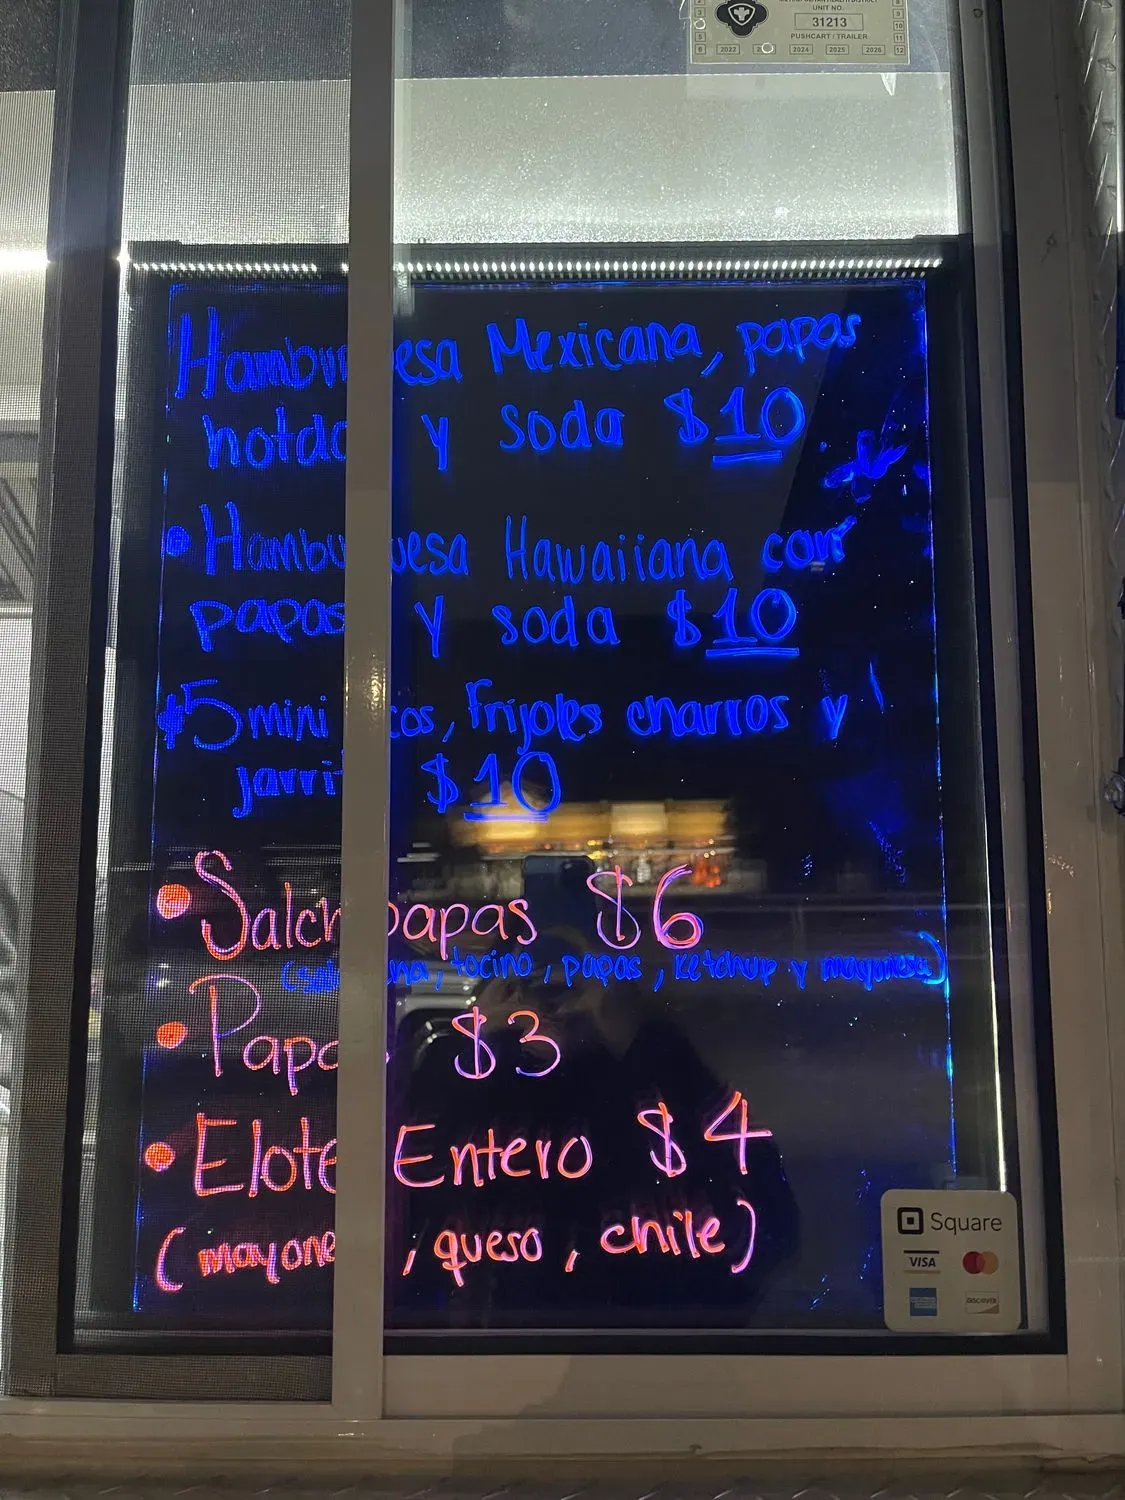 UNIT NO.
31213
PUSHCART / TRAILER
2022 2024 2025 2026
Hamburguesa Mexicana, papas
hotdog y soda $10
• Hamburguesa Hawaiiana con
papas y soda $10
•5 mini tacos, frijoles charros y
jarrito $10
• Salchipapas $6
(salchicha, tocino, papas, ketchup y mayonesa)
• Papas $3
• Elote Entero $4
(mayonesa, queso, chile)
Square
VISA
DISCOVER